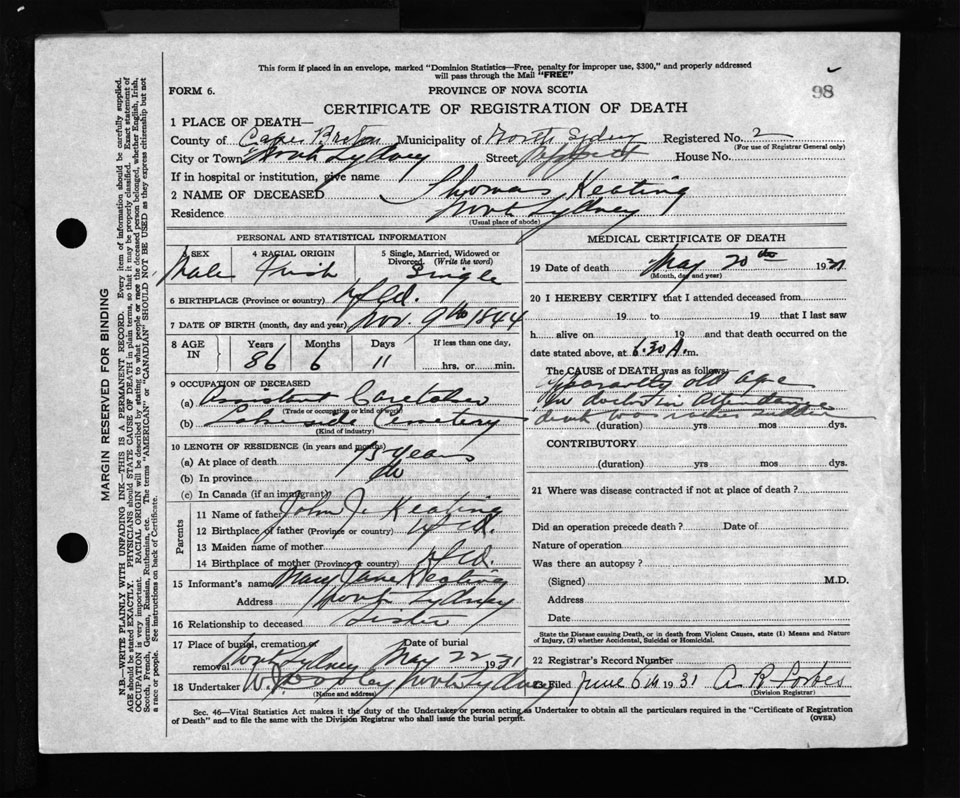 98
This form if placed in an envelope, marked "Dominion Statistics—Free, penalty for improper use, $300," and properly addressed
will pass through the Mail "FREE"
FORM 6.
PROVINCE OF NOVA SCOTIA
CERTIFICATE OF REGISTRATION OF DEATH
1 PLACE OF DEATH—
County of Cape Breton Municipality of North Sydney Registered No. 2
(For use of Registrar General only)
City or Town North Sydney Street House No.
If in hospital or institution, give name
2 NAME OF DECEASED Thomas Keating
Residence North Sydney
(Usual place of abode)
PERSONAL AND STATISTICAL INFORMATION
SEX 4 RACIAL ORIGIN 5 Single, Married, Widowed or Divorced. (Write the word)
Male Irish Single
6 BIRTHPLACE (Province or country) Nfld.
7 DATE OF BIRTH (month, day and year) Nov. 9th 1844
8 AGE IN Years Months Days If less than one day,
86 6 11 hrs. or min.
9 OCCUPATION OF DECEASED
(a) Assistant Caretaker
(Trade or occupation or kind of work)
(b) Lakeside Cemetery
(Kind of industry)
10 LENGTH OF RESIDENCE (in years and months)
(a) At place of death 75 years
(b) In province do
(c) In Canada (if an immigrant)
Parents
11 Name of father John J. Keating
12 Birthplace of father (Province or country) Nfld.
13 Maiden name of mother
14 Birthplace of mother (Province or country) Nfld.
15 Informant's name Mary Jane Keating
Address North Sydney
16 Relationship to deceased Sister
17 Place of burial, cremation or removal North Sydney Date of burial May 22 1931
18 Undertaker W. Dooley North Sydney
(Name and address)
MEDICAL CERTIFICATE OF DEATH
19 Date of death May 20th 1931
(Month, day and year)
20 I HEREBY CERTIFY that I attended deceased from
19 to 19 that I last saw
h alive on 19 and that death occurred on
date stated above, at 6.30 A. m.
The CAUSE of DEATH was as follows:
old age
no doctor in attendance
death was
(duration) yrs mos dys.
CONTRIBUTORY
(duration) yrs mos dys.
21 Where was disease contracted if not at place of death?
Did an operation precede death? Date of
Nature of operation
Was there an autopsy?
(Signed) M.D.
Address
Date
State the Disease causing Death, or in death from Violent Causes, state (1) Means and Nature
of Injury, (2) whether Accidental, Suicidal or Homicidal.
22 Registrar's Record Number
Filed June 6th 1931 A R Forbes
(Division Registrar)
Sec. 46—Vital Statistics Act makes it the duty of the Undertaker or person acting as Undertaker to obtain all the particulars required in the "Certificate of Registration
of Death" and to file the same with the Division Registrar who shall issue the burial permit.
(OVER)
MARGIN RESERVED FOR BINDING
N.B.—WRITE PLAINLY WITH UNFADING INK—THIS IS A PERMANENT RECORD. Every item of information should be carefully supplied.
AGE should be stated EXACTLY. PHYSICIANS should STATE CAUSE OF DEATH in plain terms, so that it may be properly classified. Exact statement of
OCCUPATION is very important. RACIAL ORIGIN will be described by stating to what people or race the deceased person belonged, whether English, Irish,
Scotch, French, German, Russian, Ruthenian, etc. The terms "AMERICAN" or "CANADIAN" SHOULD NOT BE USED as they express citizenship but not
a race or people. See instructions on back of Certificate.